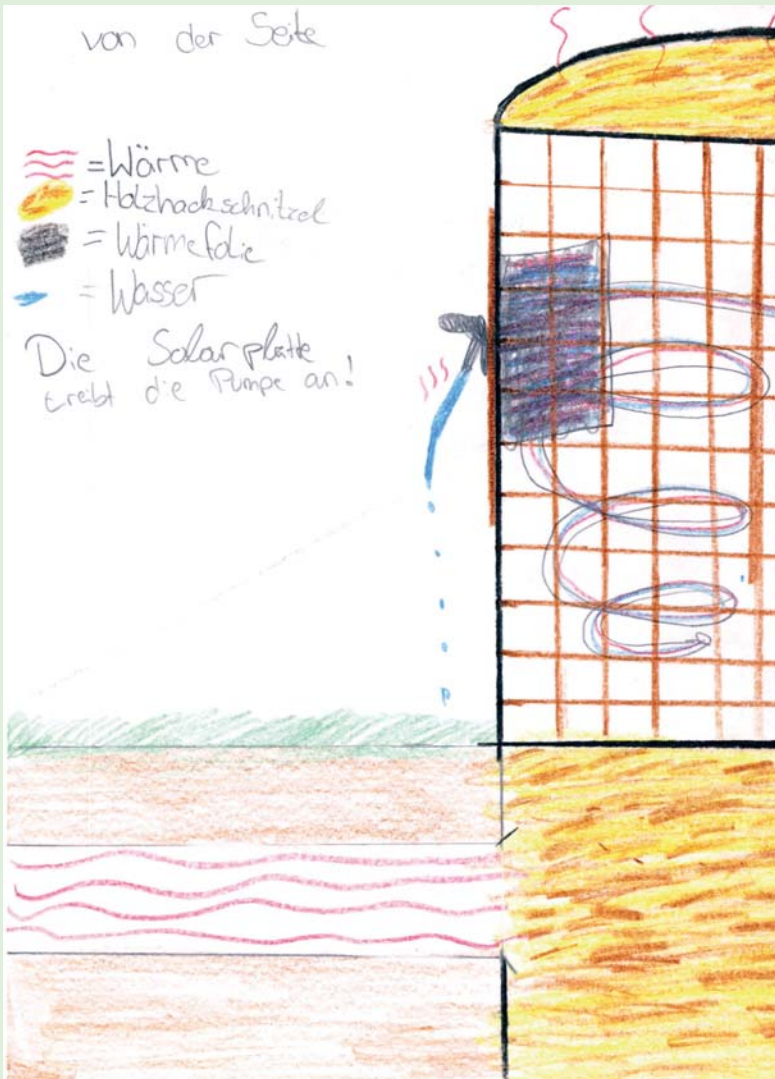 von der Seite
= Wärme
= Holzhackschnitzel
= Wärmefolie
= Wasser
Die Solarplatte
treibt die Pumpe an!